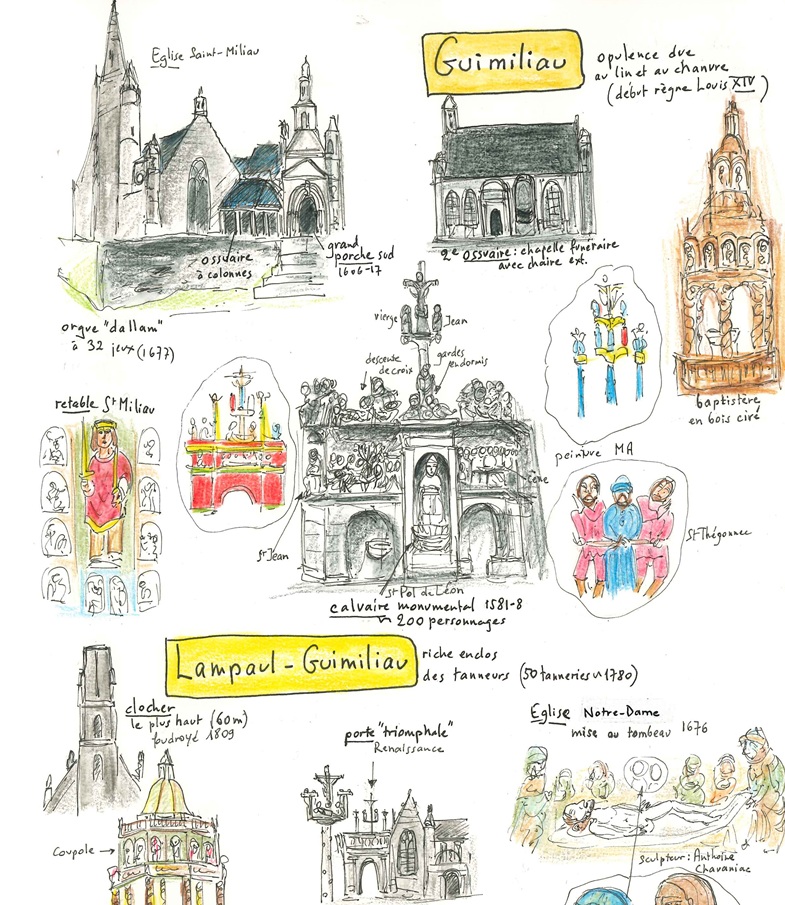 Eglise Saint-Miliau
Guimiliau
opulence due
au lin et au chanvre
(début règne Louis XIV)
ossuaire
à colonnes
grand
porche sud
1606-17
2e ossuaire : chapelle funéraire
avec chaire ext.
orgue "dallam"
à 32 jeux (1677)
vierge
Jean
descente
de croix
gardes
endormis
baptistère
en bois ciré
retable St Miliau
peinture MA
Cène
St Jean
St Thégonnec
St Pol de Léon
calvaire monumental 1581-8
~ 200 personnages
Lampaul-Guimiliau
riche enclos
des tanneurs (50 tanneries ~ 1780)
clocher
le plus haut (60m)
foudroyé 1809
porte "triomphale"
Renaissance
Eglise Notre-Dame
mise au tombeau 1676
Coupole →
sculpteur : Anthoine
Chavaniac